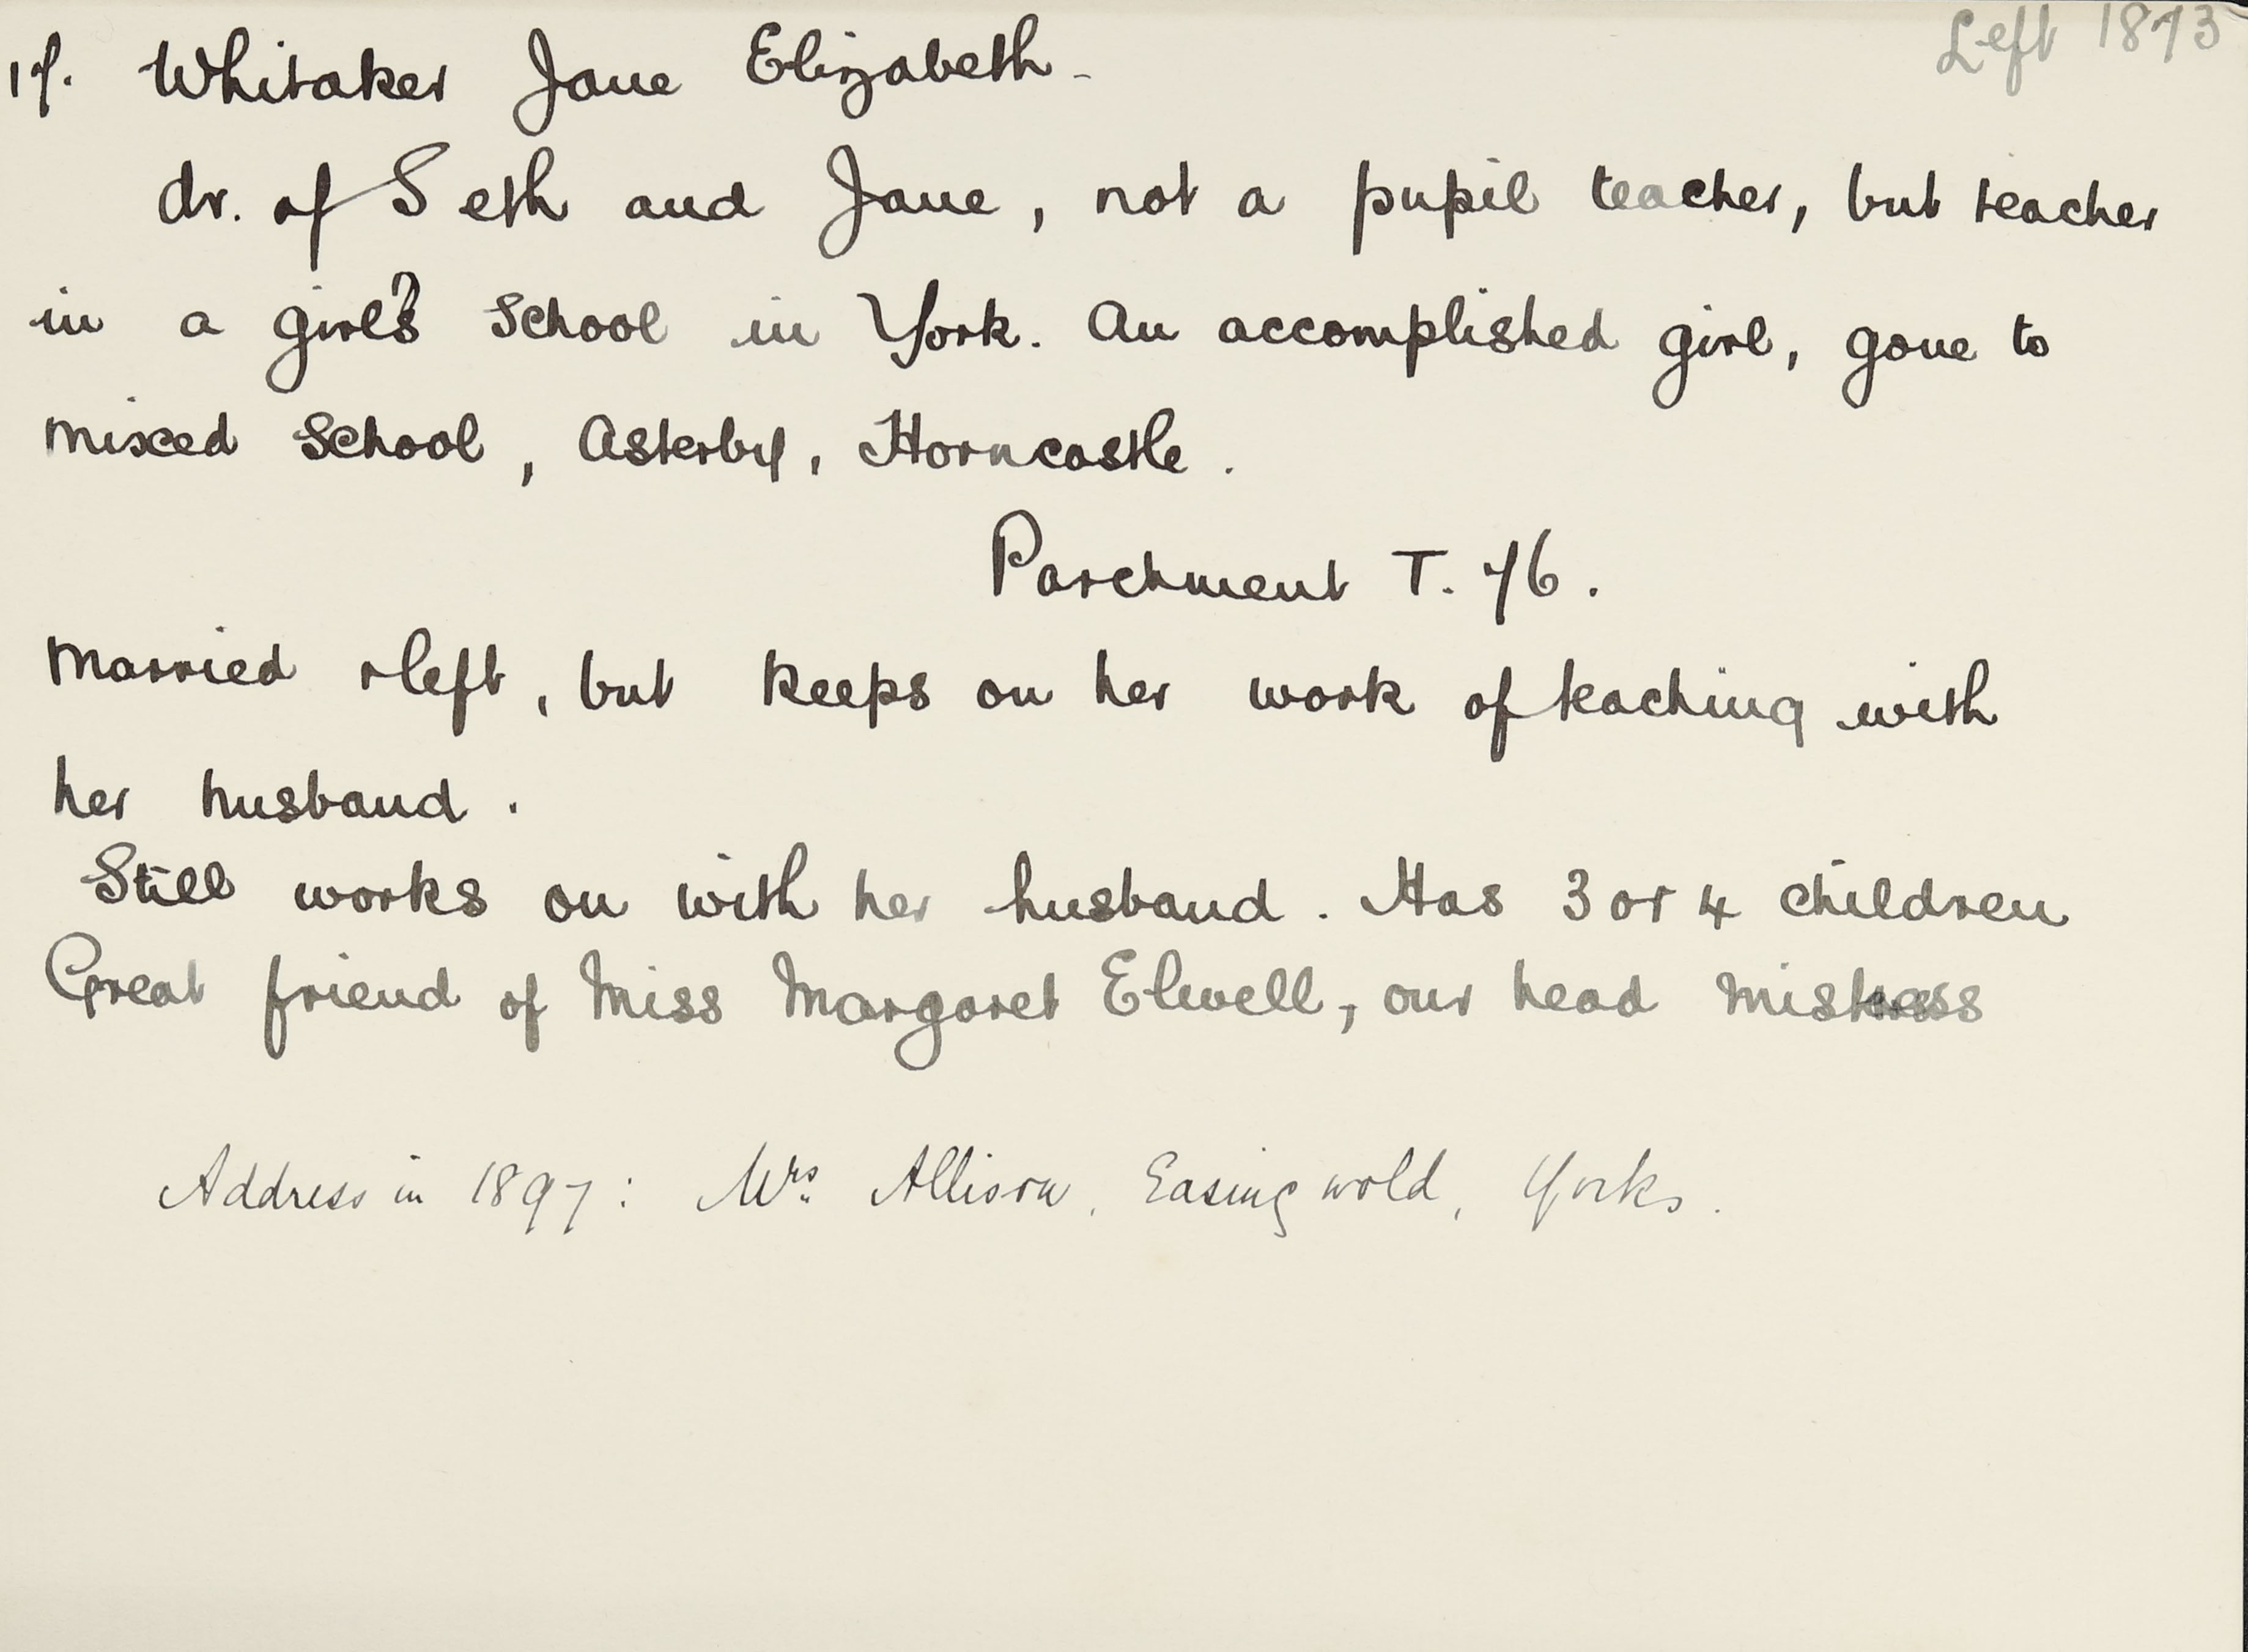 Left 1873
17. Whitaker Jane Elizabeth -
dr. of Seth and Jane, not a pupil teacher, but teacher
in a girl's School in York. An accomplished girl, gone to
Mixed School, Asterby, Horncastle.
Parchment T. 76.
Married & left, but keeps on her work of teaching with
her husband.
Still works on with her husband. Has 3 or 4 children
Great friend of Miss Margaret Elwell, our head mistress
Address in 1897: Mrs. Allison, Easingwold, Yorks.